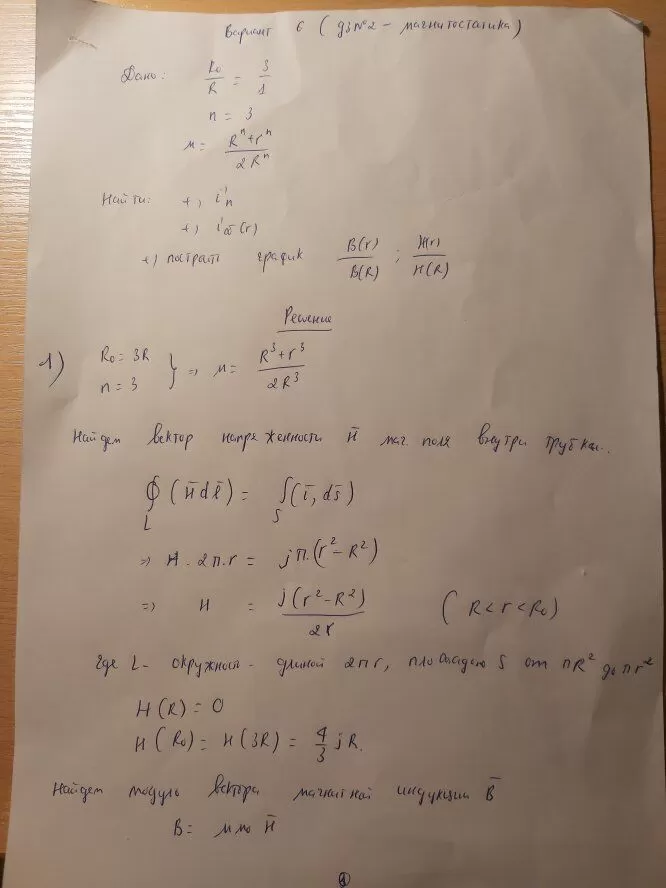 Вариант 6 (дз№2 - магнитостатика)
Дано: R₀/R = 3/1
n = 3
μ = (Rⁿ+rⁿ)/(2Rⁿ)
Найти: +) i'ₙ
+) i'об(r)
+) построить график B(r)/B(R) ; H(r)/H(R)
Решение
1) R₀ = 3R
n = 3 } => μ = (R³+r³)/(2R³)
Найдем вектор напряженности H̄ маг. поля внутри трубки..
∮_L (H̄dl̄) = ∫_S (ī, ds̄)
=> H · 2π·r = jπ·(r² - R²)
=> H = j(r²-R²)/(2r) (R < r < R₀)
Где L - окружност - длиной 2πr, площадью S от πR² до πr²
H(R) = 0
H(R₀) = H(3R) = 4/3 jR.
Найдем модуль вектора магнитной индукции B̄
B = μμ₀ H̄
1